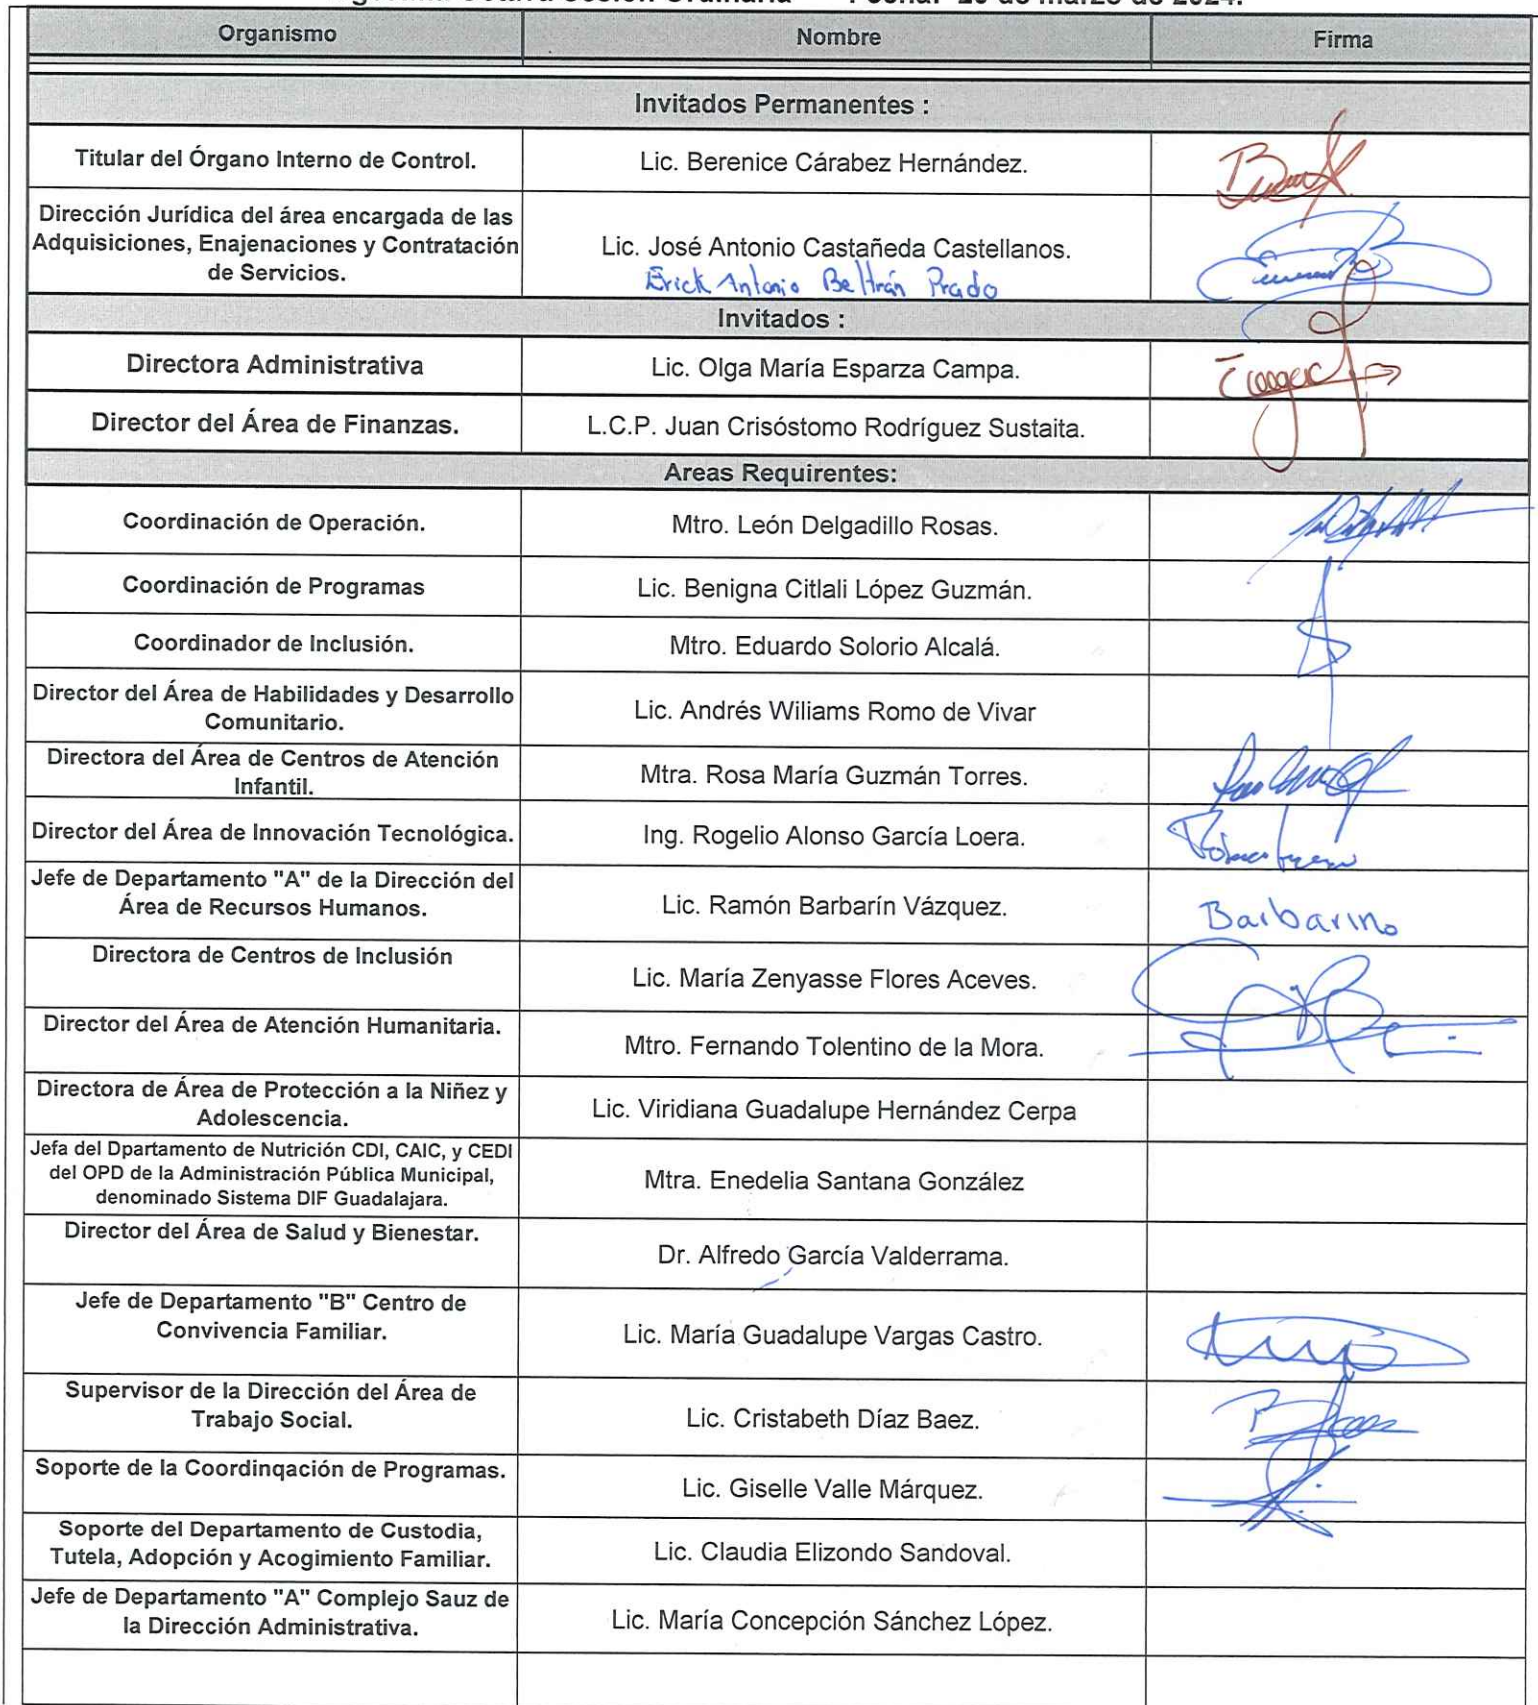 Octava Sesión Ordinaria de marzo de 2024.
Organismo Nombre Firma
Invitados Permanentes :
Titular del Órgano Interno de Control. Lic. Berenice Cárabez Hernández.
Dirección Jurídica del área encargada de las
Adquisiciones, Enajenaciones y Contratación
de Servicios.
Lic. José Antonio Castañeda Castellanos.
Erick Antonio Beltrán Prado
Invitados :
Directora Administrativa Lic. Olga María Esparza Campa.
Director del Área de Finanzas. L.C.P. Juan Crisóstomo Rodríguez Sustaita.
Areas Requirentes:
Coordinación de Operación. Mtro. León Delgadillo Rosas.
Coordinación de Programas Lic. Benigna Citlali López Guzmán.
Coordinador de Inclusión. Mtro. Eduardo Solorio Alcalá.
Director del Área de Habilidades y Desarrollo
Comunitario.
Lic. Andrés Wiliams Romo de Vivar
Directora del Área de Centros de Atención
Infantil.
Mtra. Rosa María Guzmán Torres.
Director del Área de Innovación Tecnológica. Ing. Rogelio Alonso García Loera.
Jefe de Departamento "A" de la Dirección del
Área de Recursos Humanos.
Lic. Ramón Barbarín Vázquez. Barbarino
Directora de Centros de Inclusión Lic. María Zenyasse Flores Aceves.
Director del Área de Atención Humanitaria. Mtro. Fernando Tolentino de la Mora.
Directora de Área de Protección a la Niñez y
Adolescencia.
Lic. Viridiana Guadalupe Hernández Cerpa
Jefa del Dpartamento de Nutrición CDI, CAIC, y CEDI
del OPD de la Administración Pública Municipal,
denominado Sistema DIF Guadalajara.
Mtra. Enedelia Santana González
Director del Área de Salud y Bienestar. Dr. Alfredo García Valderrama.
Jefe de Departamento "B" Centro de
Convivencia Familiar.
Lic. María Guadalupe Vargas Castro.
Supervisor de la Dirección del Área de
Trabajo Social.
Lic. Cristabeth Díaz Baez.
Soporte de la Coordinqación de Programas. Lic. Giselle Valle Márquez.
Soporte del Departamento de Custodia,
Tutela, Adopción y Acogimiento Familiar.
Lic. Claudia Elizondo Sandoval.
Jefe de Departamento "A" Complejo Sauz de
la Dirección Administrativa.
Lic. María Concepción Sánchez López.